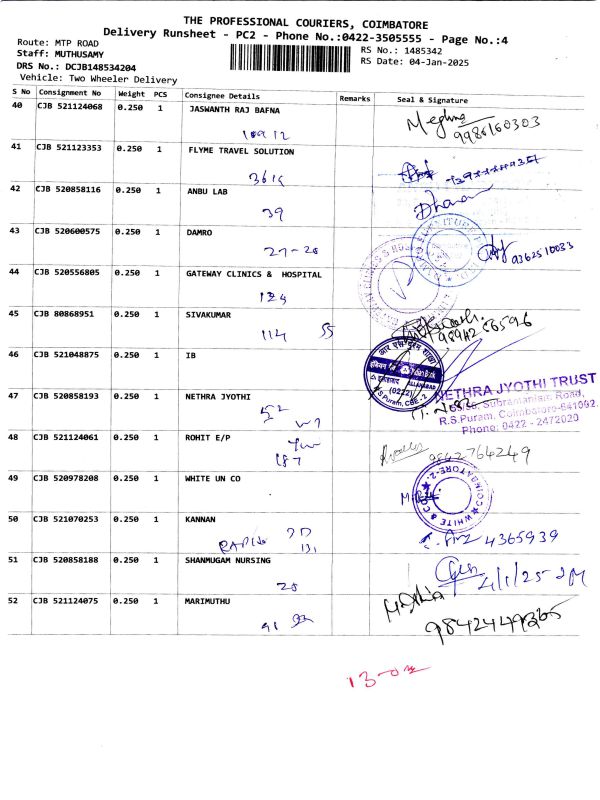 THE PROFESSIONAL COURIERS, COIMBATORE
Delivery Runsheet - PC2 - Phone No.:0422-3505555 - Page No.:4
Route: MTP ROAD
RS No.: 1485342
Staff: MUTHUSAMY
RS Date: 04-Jan-2025
DRS No.: DCJB148534204
Vehicle: Two Wheeler Delivery
S No Consignment No Weight PCS Consignee Details Remarks Seal & Signature
40 CJB 521124068 0.250 1 JASWANTH RAJ BAFNA
Meghna
9986160303
10912
41 CJB 521123353 0.250 1 FLYME TRAVEL SOLUTION
42 CJB 520858116 0.250 1 ANBU LAB
Dhana
39
43 CJB 520600575 0.250 1 DAMRO
9362510033
27-28
44 CJB 520556805 0.250 1 GATEWAY CLINICS & HOSPITAL
124
45 CJB 80868951 0.250 1 SIVAKUMAR
114 55
46 CJB 521048875 0.250 1 IB
आर एस पुरम शाखा
इलाहाबाद ALLAHABAD
(0222)
R.S.Puram, CBE-2
47 CJB 520858193 0.250 1 NETHRA JYOTHI
52
NETHRA JYOTHI TRUST
Subramaniam Road,
R.S.Puram, Coimbatore-641002.
Phone: 0422 - 2472020
48 CJB 521124061 0.250 1 ROHIT E/P
9842764249
187
49 CJB 520978208 0.250 1 WHITE UN CO
WHITE & CO
COIMBATORE-2
50 CJB 521070253 0.250 1 KANNAN
4365939
131
51 CJB 520858188 0.250 1 SHANMUGAM NURSING
4/1/25
28
52 CJB 521124075 0.250 1 MARIMUTHU
91
13-02